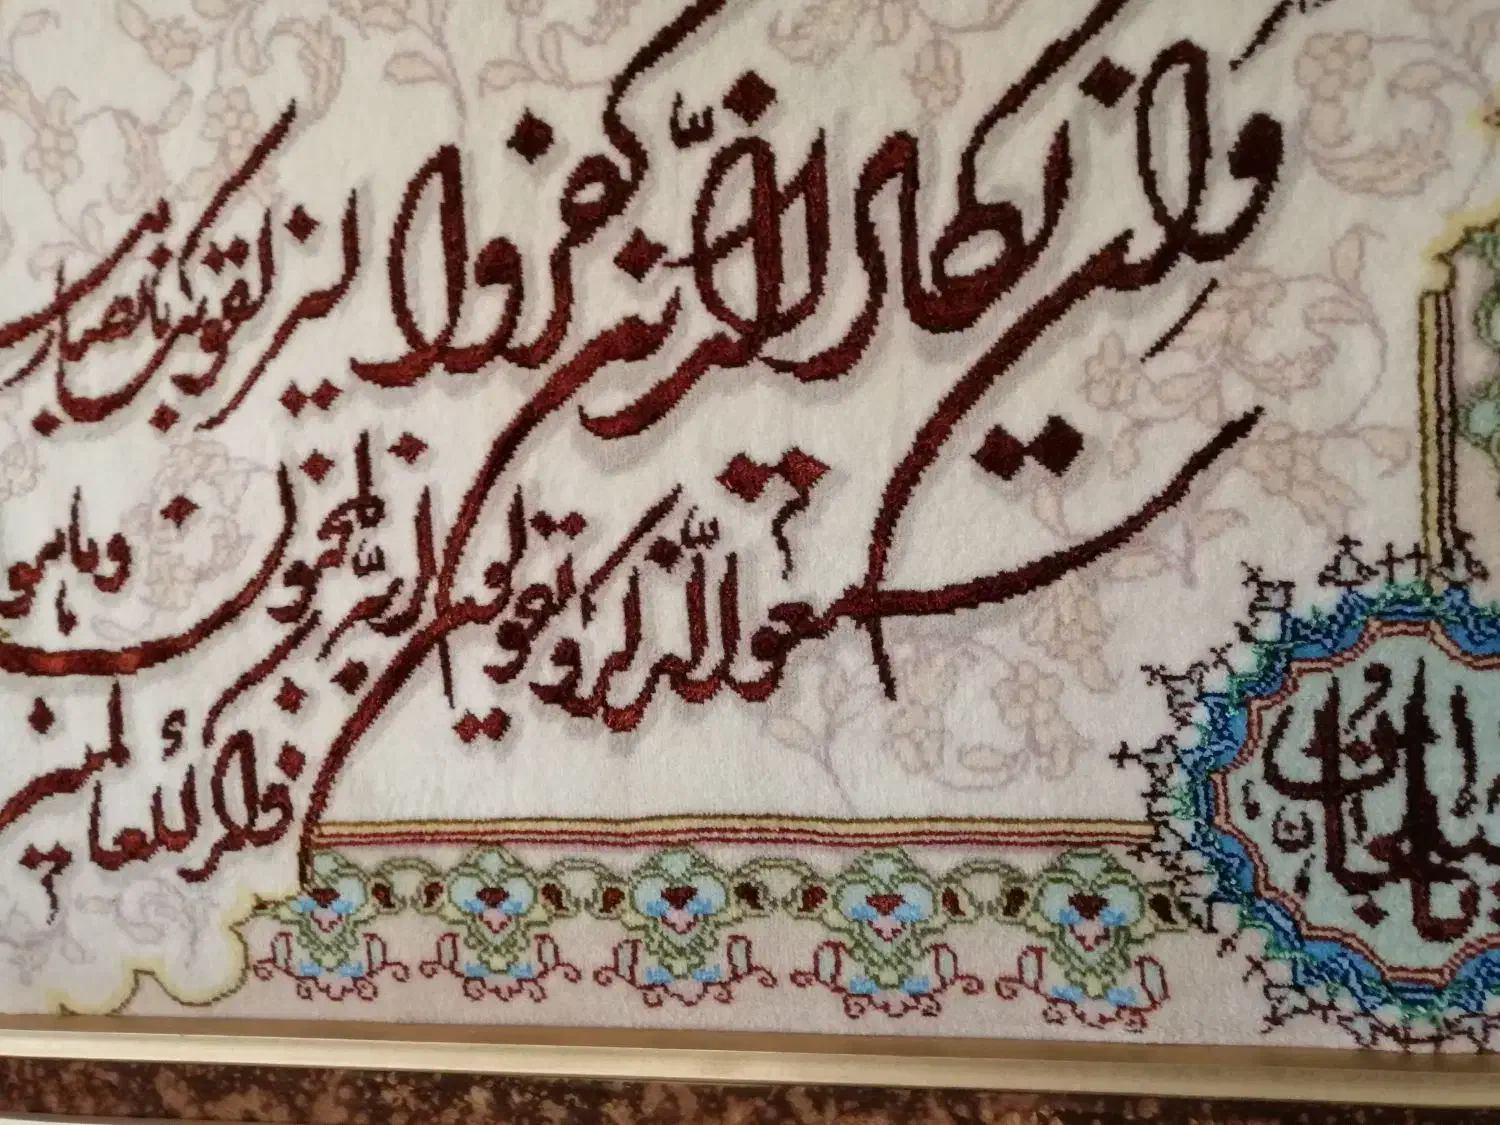 وان یکاد الذین کفروا لیزلقونک بابصارهم
لما سمعوا الذکر و یقولون انه لمجنون و ما هو
الا ذکر للعالمین